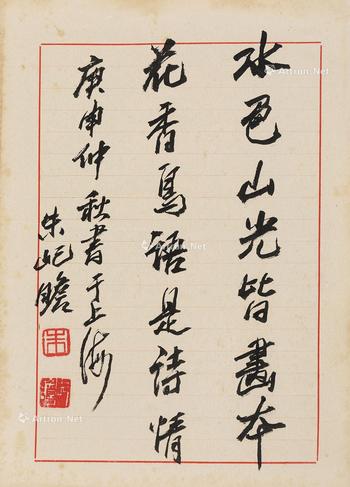 水色山光皆畫本
花香鳥語是詩情
庚申仲秋書于上海
朱屺瞻
朱
Artron.Net
Artron.Net
Artron.Net
Artron.Net